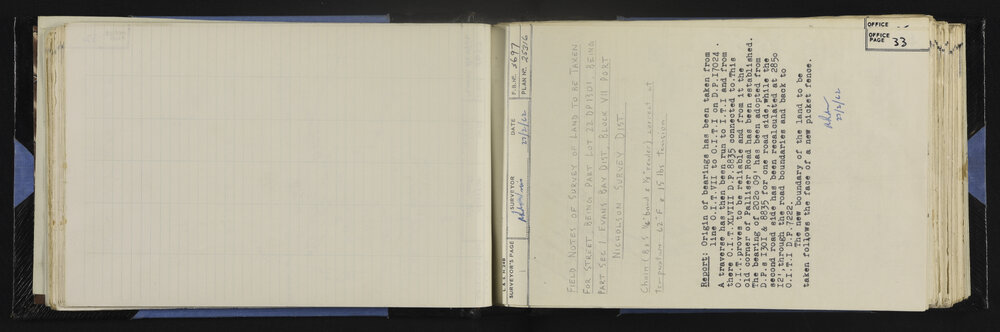 OFFICE
OFFICE PAGE 33
L. & S. H 148
SURVEYOR'S PAGE 1
SURVEYOR
DATE 27/2/62
F.B. No. 5697
PLAN No. 25316
FIELD NOTES OF SURVEY OF LAND TO BE TAKEN
FOR STREET BEING PART LOT 22 DP 1301, BEING
PART SEC 1 EVANS BAY DIST. BLOCK VII PORT
NICHOLSON SURVEY DIST
correct at
Temperature 62°F & 15 lbs Tension
Report: Origin of bearings has been taken from
line O.I.T.VII to O.I.T.I on D.P.I7024 .
A traverse has then been run to I.T.I and from
there O.I.T.XLVIII D.P.8835 connected to.This
O.I.T.proves to be reliable and from it the
old corner of Palliser Road has been established.
The bearing of 202o 09' has been adopted from
D.P.s I301 & 8835 for one road side,while the
second road side has been recalculated at 285o
I2',through the road boundaries and back to
O.I.T.I D.P.7222.
The new boundary of the land to be
taken follows the face of a new picket fence.
27/2/62